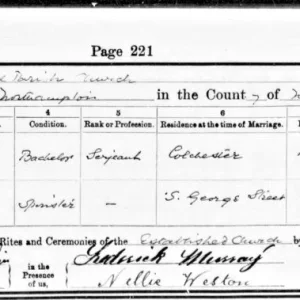 Page 221
Parish Church
Northampton in the County of
4 5 6
Condition. Rank or Profession. Residence at the time of Marriage.
Bachelor Serjeant Colchester
Spinster — S. George Street
Rites and Ceremonies of the Established Church b
in the Presence of us, Frederick Murray
Nellie Weston